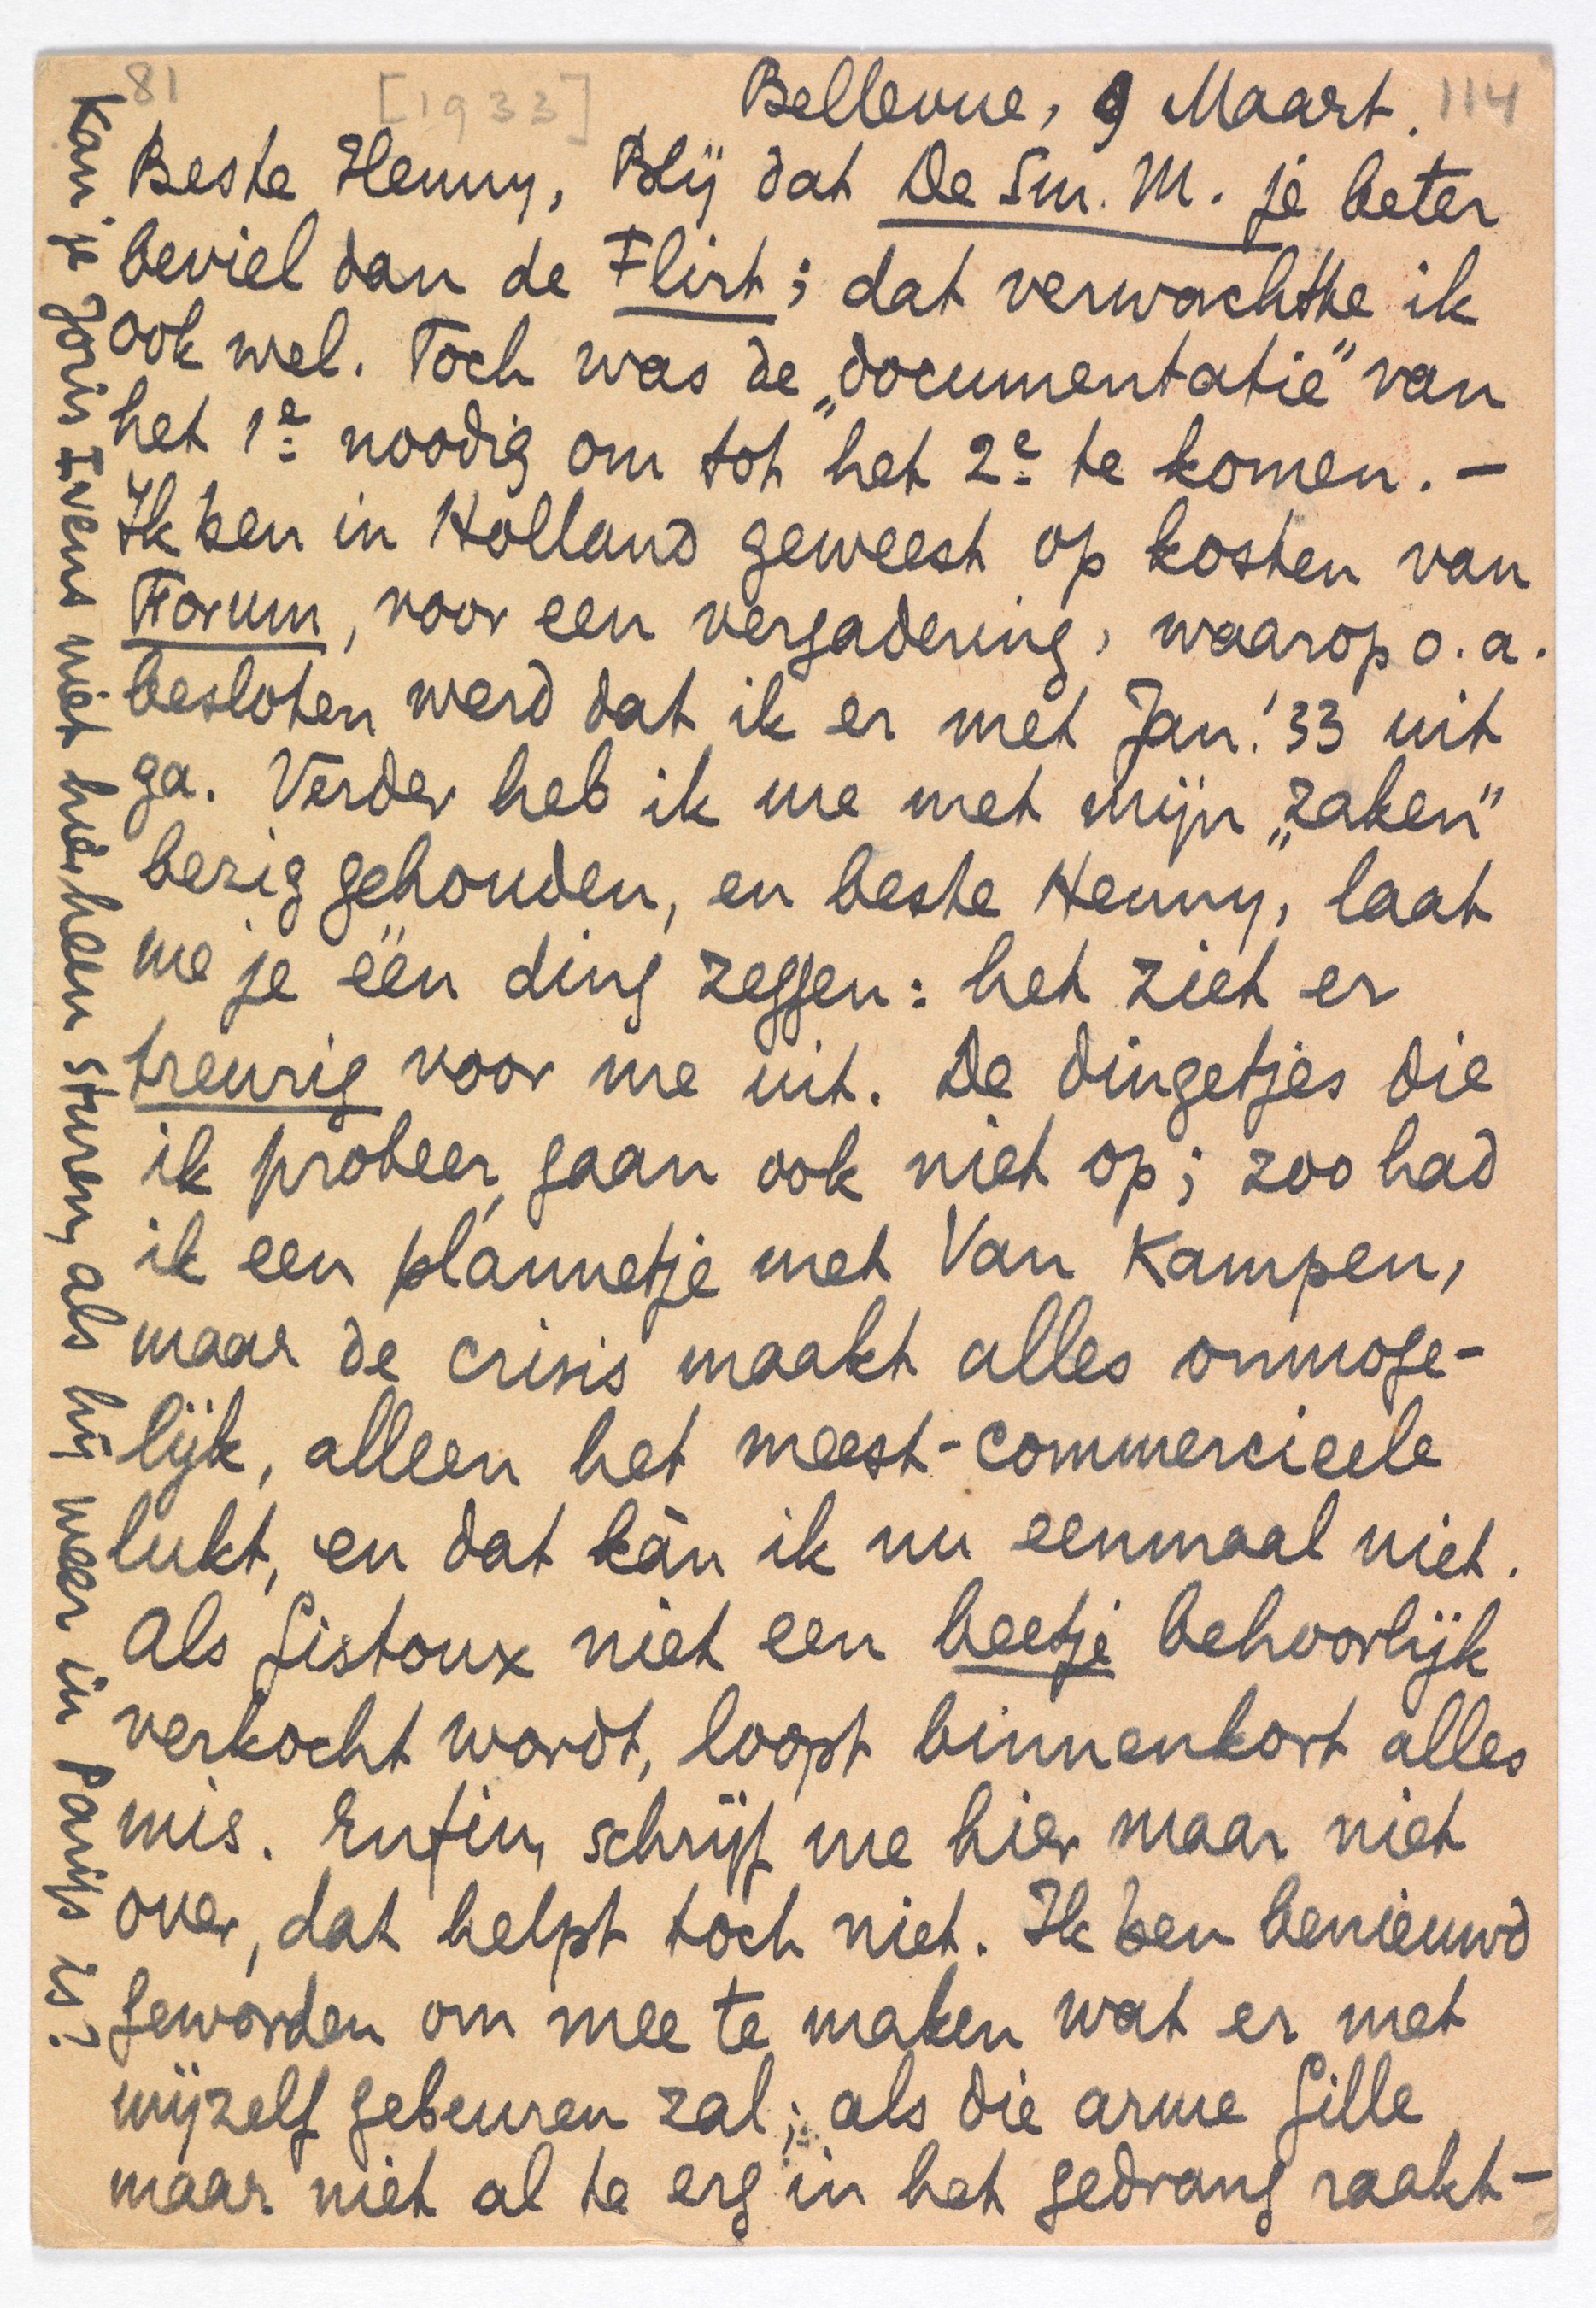 81 [1933] 114
Bellevue, 9 Maart.
Beste Henny, Blij dat De Sm. M. je beter
beviel dan de Flirt; dat verwachtte ik
ook wel. Toch was de „documentatie” van
het 1e noodig om tot het 2e te komen. —
Ik ben in Holland geweest op kosten van
Forum, voor een vergadering, waarop o.a.
besloten werd dat ik er met Jan. '33 uit
ga. Verder heb ik me met mijn „zaken”
bezig gehouden, en beste Henny, laat
me je één ding zeggen: het ziet er
treurig voor me uit. De dingetjes die
ik probeer, gaan ook niet op; zoo had
ik een plannetje met Van Kampen,
maar de crisis maakt alles onmoge-
lijk, alleen het meest-commercieele
lukt, en dat kàn ik nu eenmaal niet.
Als Gistoux niet een beetje behoorlijk
verkocht wordt, loopt binnenkort alles
mis. Enfin, schrijf me hier maar niet
over, dat helpt toch niet. Ik ben benieuwd
geworden om mee te maken wat er met
mijzelf gebeuren zal; als die arme Gille
maar niet al te erg in het gedrang raakt —
Kan je Joris Ivens niet hierheen sturen, als hij weer in Parijs is?